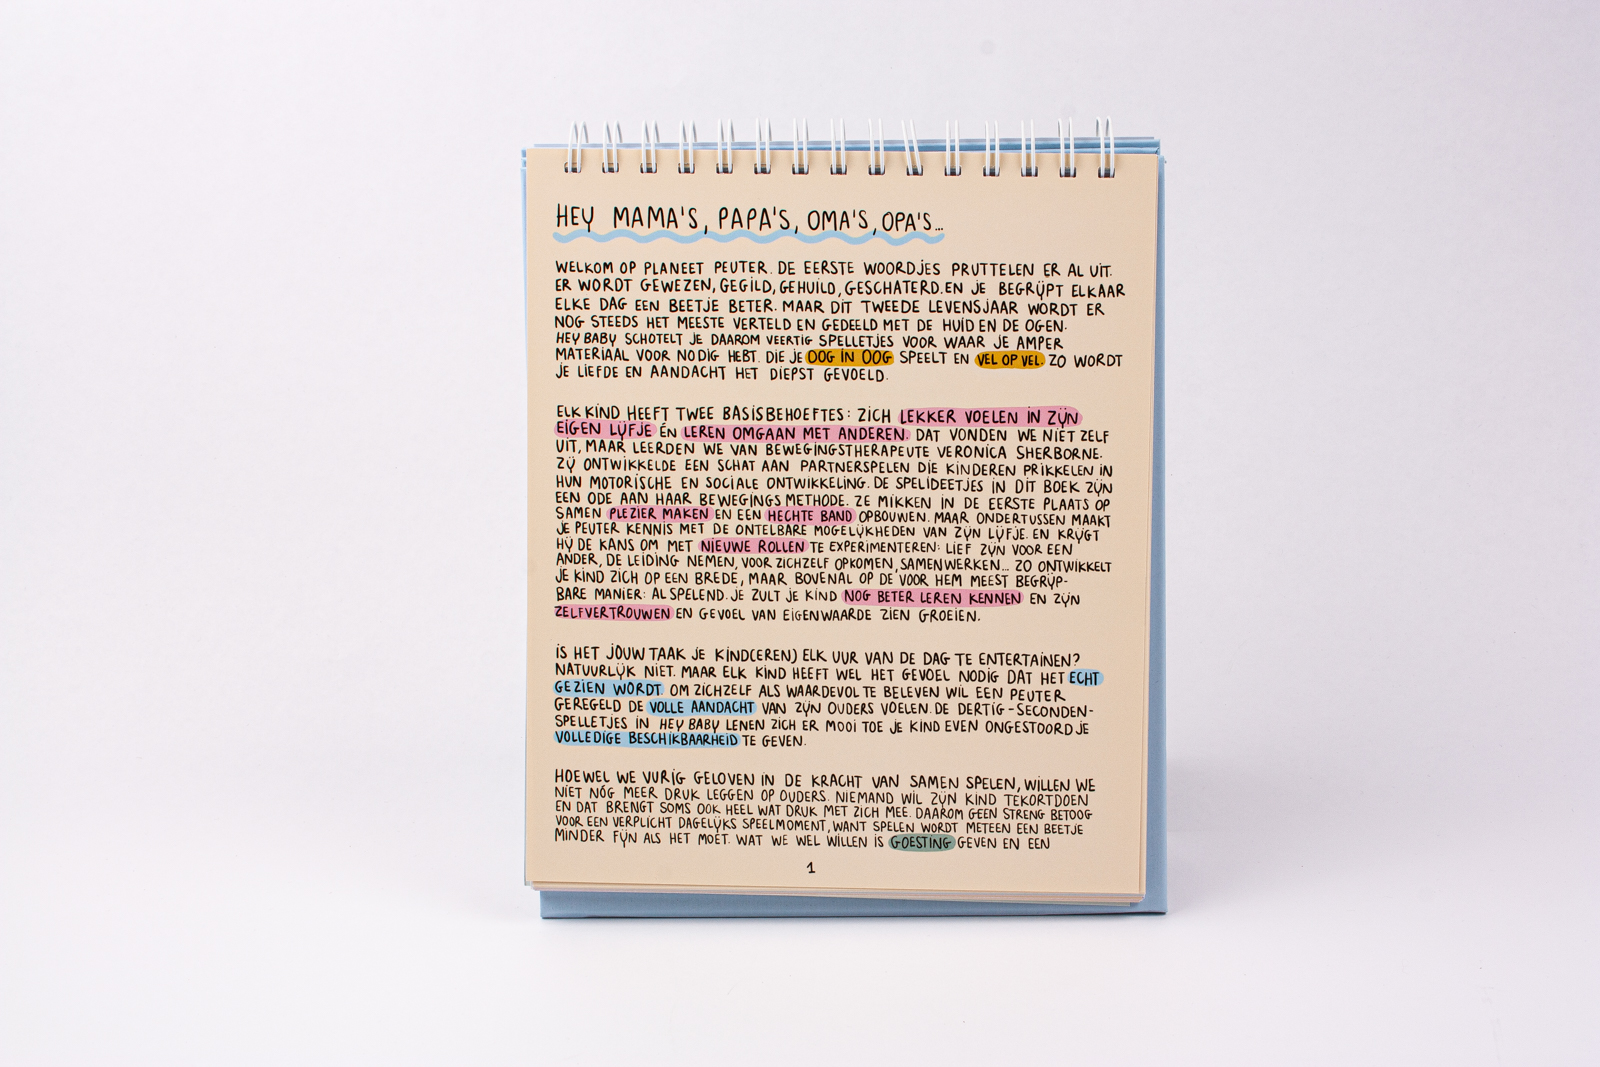 HEY MAMA'S, PAPA'S, OMA'S, OPA'S...
WELKOM OP PLANEET PEUTER. DE EERSTE WOORDJES PRUTTELEN ER AL UIT.
ER WORDT GEWEZEN, GEGILD, GEHUILD, GESCHATERD. EN JE BEGRIJPT ELKAAR
ELKE DAG EEN BEETJE BETER. MAAR DIT TWEEDE LEVENSJAAR WORDT ER
NOG STEEDS HET MEESTE VERTELD EN GEDEELD MET DE HUID EN DE OGEN.
HEY BABY SCHOTELT JE DAAROM VEERTIG SPELLETJES VOOR WAAR JE AMPER
MATERIAAL VOOR NODIG HEBT. DIE JE OOG IN OOG SPEELT EN VEL OP VEL. ZO WORDT
JE LIEFDE EN AANDACHT HET DIEPST GEVOELD.
ELK KIND HEEFT TWEE BASISBEHOEFTES: ZICH LEKKER VOELEN IN ZIJN
EIGEN LIJFJE ÉN LEREN OMGAAN MET ANDEREN. DAT VONDEN WE NIET ZELF
UIT, MAAR LEERDEN WE VAN BEWEGINGSTHERAPEUTE VERONICA SHERBORNE.
ZIJ ONTWIKKELDE EEN SCHAT AAN PARTNERSPELEN DIE KINDEREN PRIKKELEN IN
HUN MOTORISCHE EN SOCIALE ONTWIKKELING. DE SPELIDEETJES IN DIT BOEK ZIJN
EEN ODE AAN HAAR BEWEGINGSMETHODE. ZE MIKKEN IN DE EERSTE PLAATS OP
SAMEN PLEZIER MAKEN EN EEN HECHTE BAND OPBOUWEN. MAAR ONDERTUSSEN MAAKT
JE PEUTER KENNIS MET DE ONTELBARE MOGELIJKHEDEN VAN ZIJN LIJFJE. EN KRIJGT
HIJ DE KANS OM MET NIEUWE ROLLEN TE EXPERIMENTEREN: LIEF ZIJN VOOR EEN
ANDER, DE LEIDING NEMEN, VOOR ZICHZELF OPKOMEN, SAMENWERKEN... ZO ONTWIKKELT
JE KIND ZICH OP EEN BREDE, MAAR BOVENAL OP DE VOOR HEM MEEST BEGRIJP-
BARE MANIER: AL SPELEND. JE ZULT JE KIND NOG BETER LEREN KENNEN EN ZIJN
ZELFVERTROUWEN EN GEVOEL VAN EIGENWAARDE ZIEN GROEIEN.
IS HET JOUW TAAK JE KIND(EREN) ELK UUR VAN DE DAG TE ENTERTAINEN?
NATUURLIJK NIET. MAAR ELK KIND HEEFT WEL HET GEVOEL NODIG DAT HET ECHT
GEZIEN WORDT. OM ZICHZELF ALS WAARDEVOL TE BELEVEN WIL EEN PEUTER
GEREGELD DE VOLLE AANDACHT VAN ZIJN OUDERS VOELEN. DE DERTIG-SECONDEN-
SPELLETJES IN HEY BABY LENEN ZICH ER MOOI TOE JE KIND EVEN ONGESTOORD JE
VOLLEDIGE BESCHIKBAARHEID TE GEVEN.
HOEWEL WE VURIG GELOVEN IN DE KRACHT VAN SAMEN SPELEN, WILLEN WE
NIET NÓG MEER DRUK LEGGEN OP OUDERS. NIEMAND WIL ZIJN KIND TEKORTDOEN
EN DAT BRENGT SOMS OOK HEEL WAT DRUK MET ZICH MEE. DAAROM GEEN STRENG BETOOG
VOOR EEN VERPLICHT DAGELIJKS SPEELMOMENT, WANT SPELEN WORDT METEEN EEN BEETJE
MINDER FIJN ALS HET MOET. WAT WE WEL WILLEN IS GOESTING GEVEN EN EEN
1